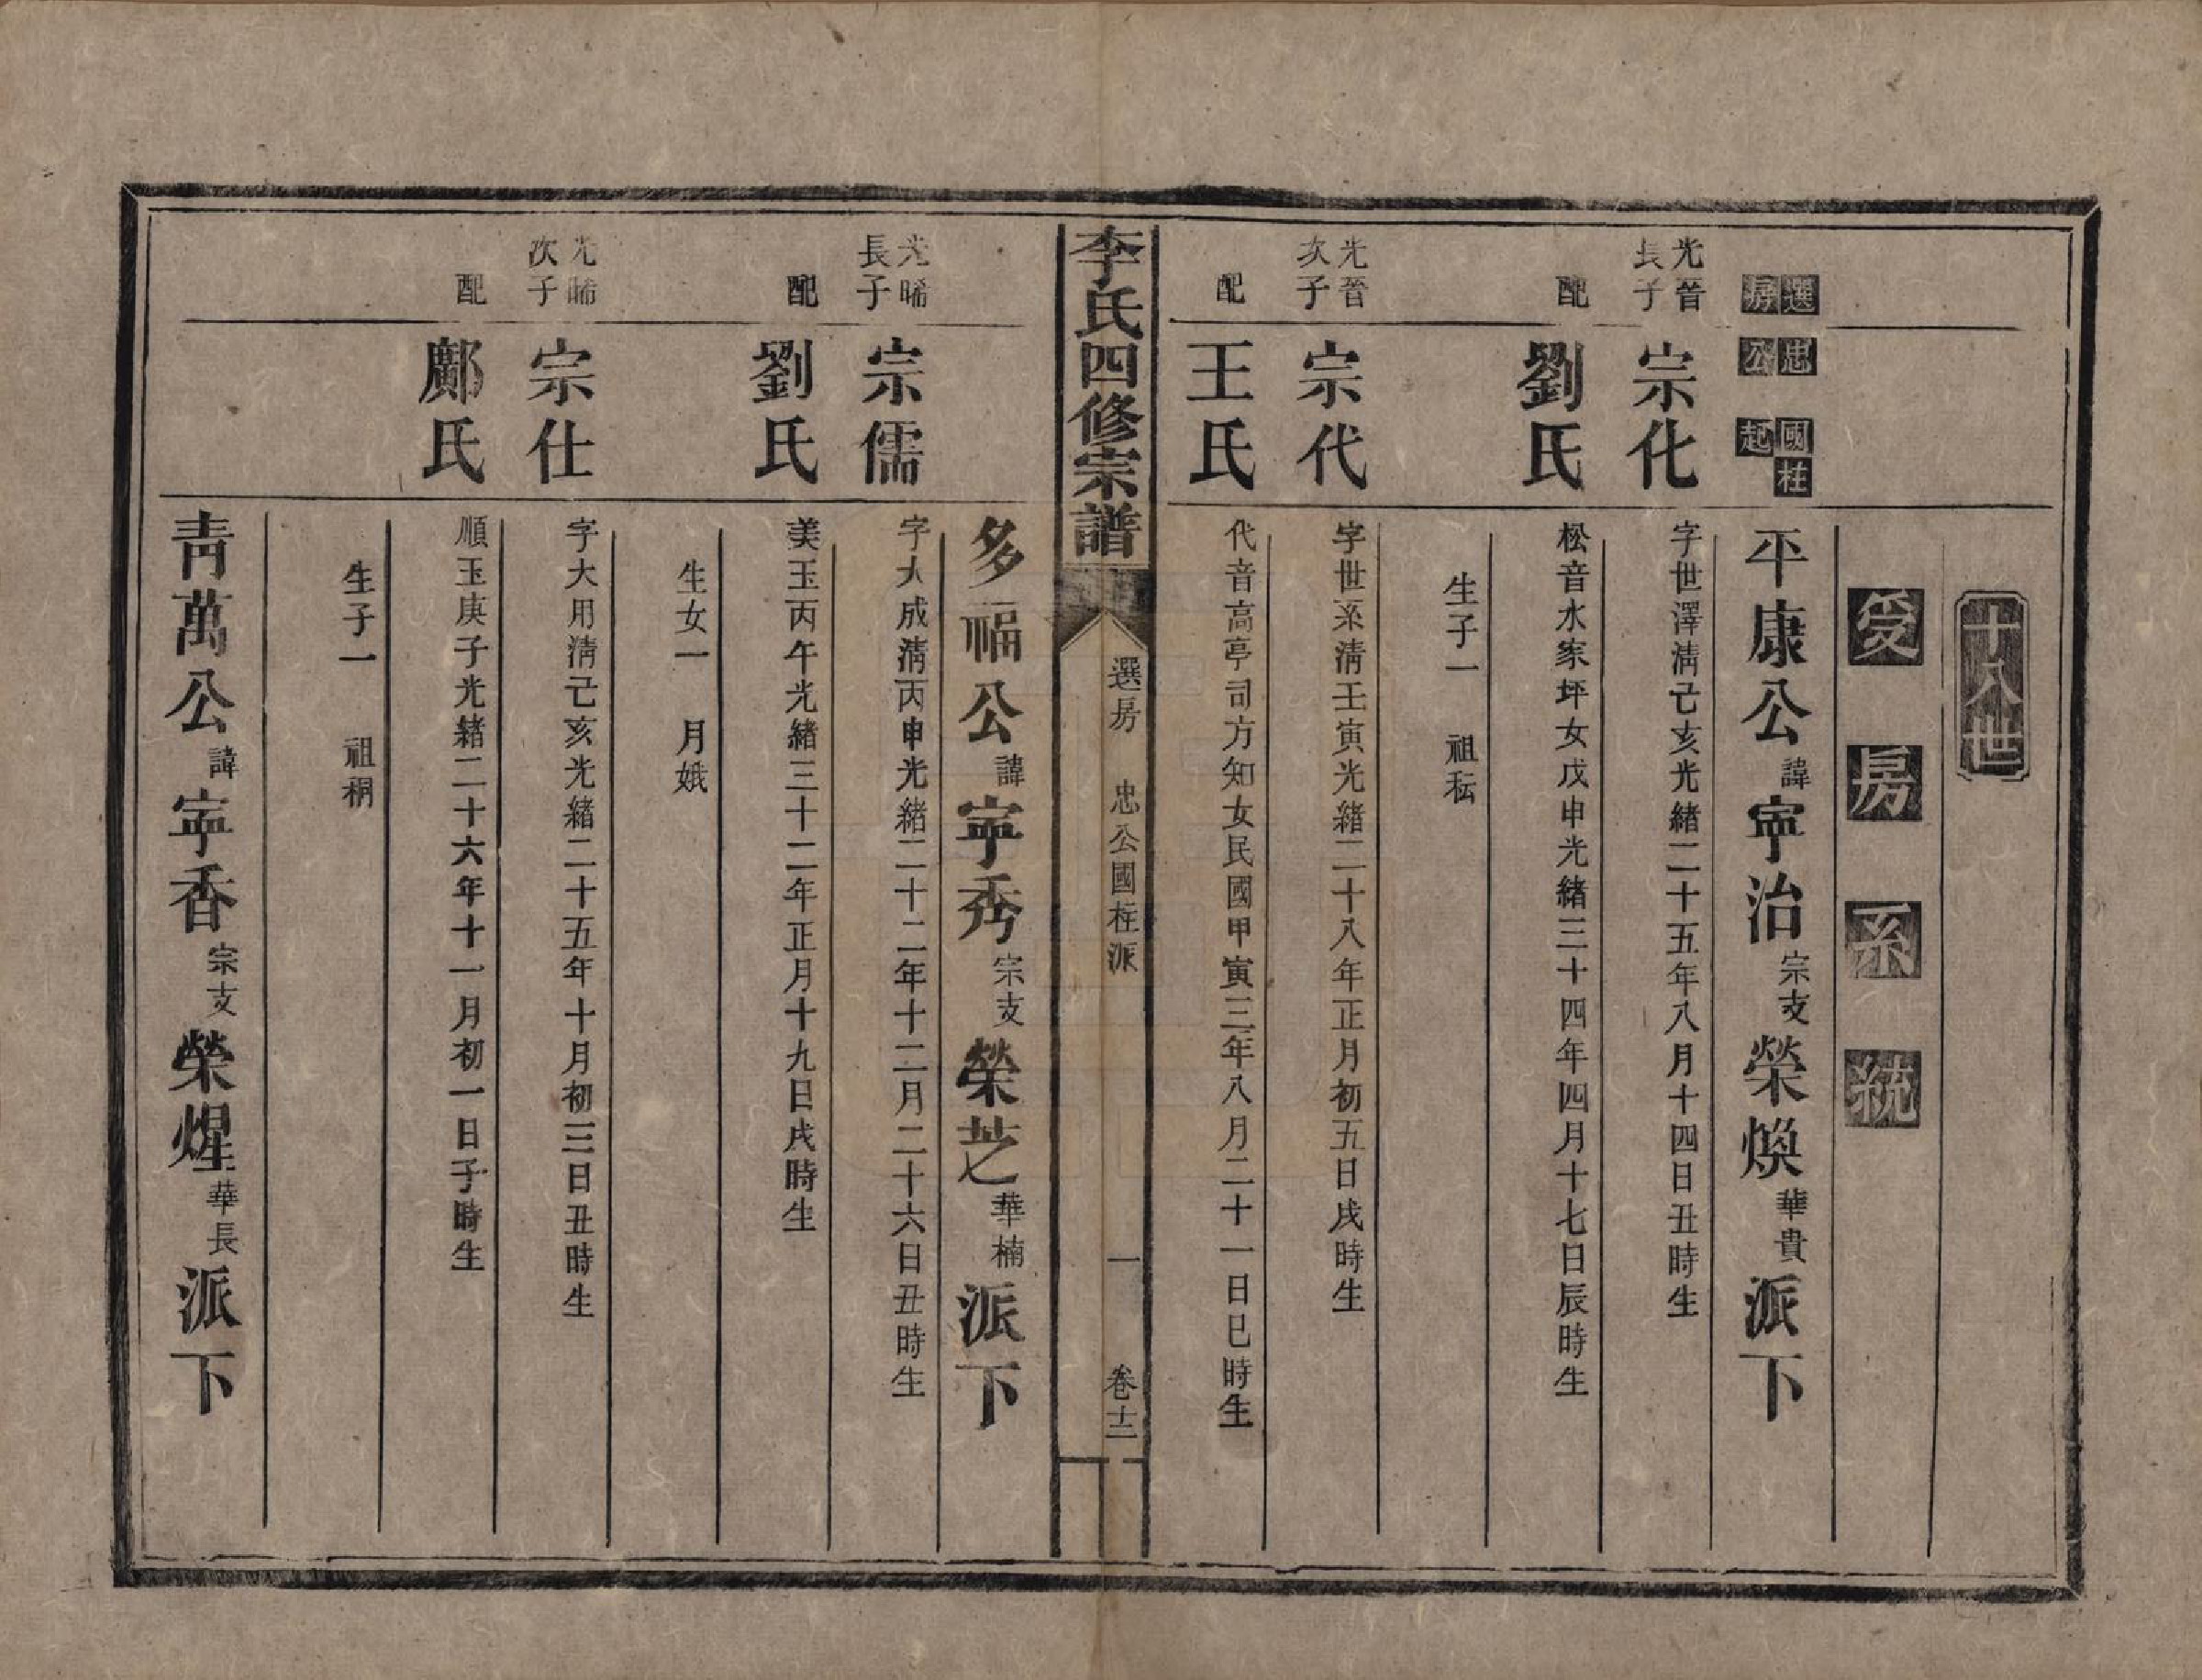 十八世
受房系統
選房 忠公 國柱起
平康公諱寕治宗支榮煥華貴派下
光晉長子 宗化
字世澤淸己亥光緖二十五年八月十四日丑時生
配 劉氏
松音水家坪女戊申光緖三十四年四月十七日辰時生
生子一 祖秐
光晉次子 宗代
字世系淸壬寅光緖二十八年正月初五日戌時生
配 王氏
代音高亭司方知女民國甲寅三年八月二十一日巳時生
李氏四修宗譜 選房 忠公國柱派 一 卷十二
多福公諱寕秀宗支榮芝華楠派下
光晞長子 宗儒
字大成淸丙申光緖二十二年十二月二十六日丑時生
配 劉氏
美玉丙午光緖三十二年正月十九日戌時生
生女一 月娥
光晞次子 宗仕
字大用淸己亥光緖二十五年十月初三日丑時生
配 鄺氏
順玉庚子光緖二十六年十一月初一日子時生
生子一 祖秱
靑萬公諱寕香宗支榮煋華長派下